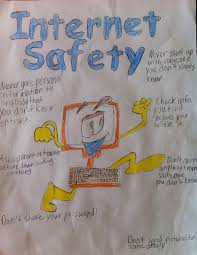 Internet
Safety
Never give personal
information to
anybody that
you don't know
or trust.
Never meet up
with someone
you don't
know
Check info.
before you
Ask a parent or
before downloading
anything
Don't
anything from
someone
you don't know
Don't share your password!
Don't send pictures to